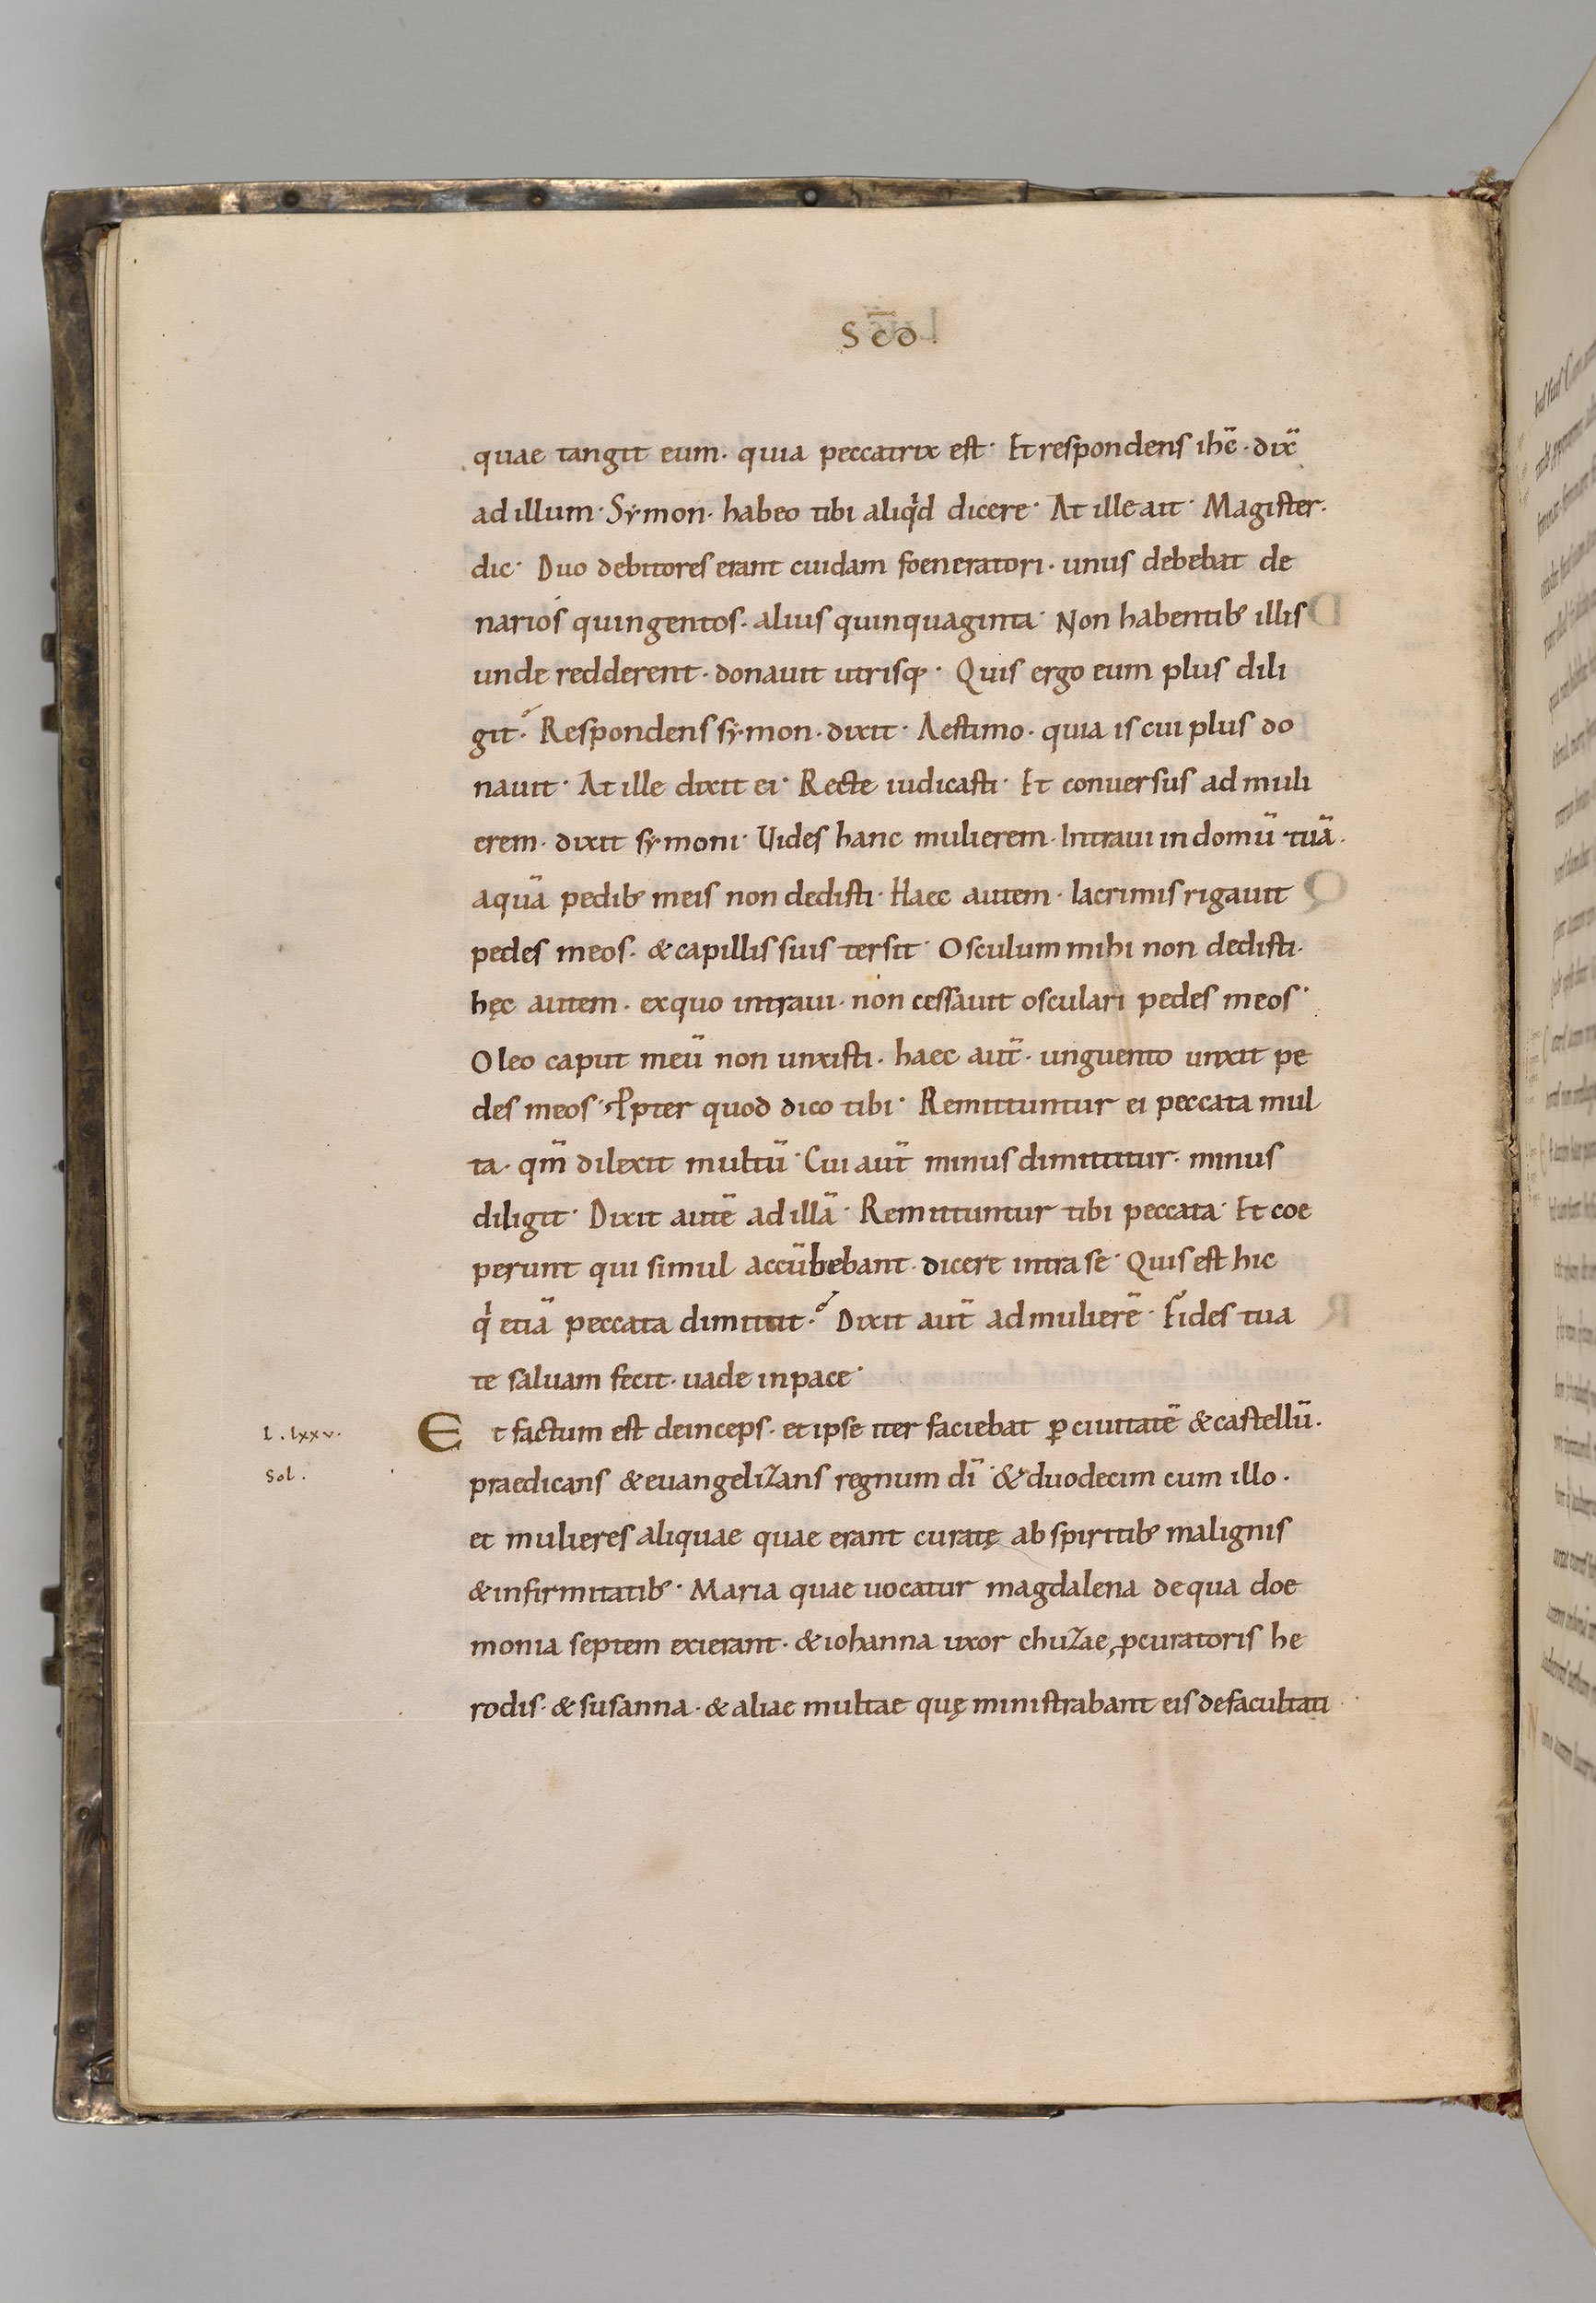 scd̄
quae tangit eum· quia peccatrix est· Et respondens ihc̄· dix̄
ad illum· Symon· habeo tibi aliqͥd dicere· At ille ait· Magister·
dic· Duo debitores erant cuidam foeneratori· unus debebat de
narios quingentos· alius quinquaginta· Non habentib; illis
unde redderent· donauit utrisq;· Quis ergo eum plus dili
git? Respondens symon· dixit· Aestimo· quia is cui plus do
nauit· At ille dixit ei· Recte iudicasti· Et conuersus ad muli
erem· dixit symoni· Uides hanc mulierem· Intraui in domū tuā·
aquā pedib; meis non dedisti· Haec autem· lacrimis rigauit
pedes meos· & capillis suis tersit· Osculum mihi non dedisti·
hęc autem· ex quo intraui· non cessauit osculari pedes meos·
Oleo caput meū non unxisti· haec aut̄· unguento unxit pe
des meos· Ꝓpter quod dico tibi· Remittuntur ei peccata mul
ta· qm̄ dilexit multū· Cui aut̄ minus dimittitur· minus
diligit· Dixit autē ad illā· Remittuntur tibi peccata· Et coe
perunt qui simul accūbebant· dicere intra se· Quis est hic
qͥ etiā peccata dimittit? Dixit aut̄ ad mulierē· Fides tua
te saluam fecit· uade in pace·
Et factum est deinceps· et ipse iter faciebat ꝑ ciuitatē & castellū·
L . lxxv.
Sol .
praedicans & euangelizans regnum dī· & duodecim cum illo·
et mulieres aliquae quae erant curatę ab spiritib; malignis
& infirmitatib;· Maria quae uocatur magdalena de qua doe
monia septem exierant· & iohanna uxor chuzae ꝓcuratoris he
rodis· & susanna· & aliae multae quę ministrabant eis de facultati